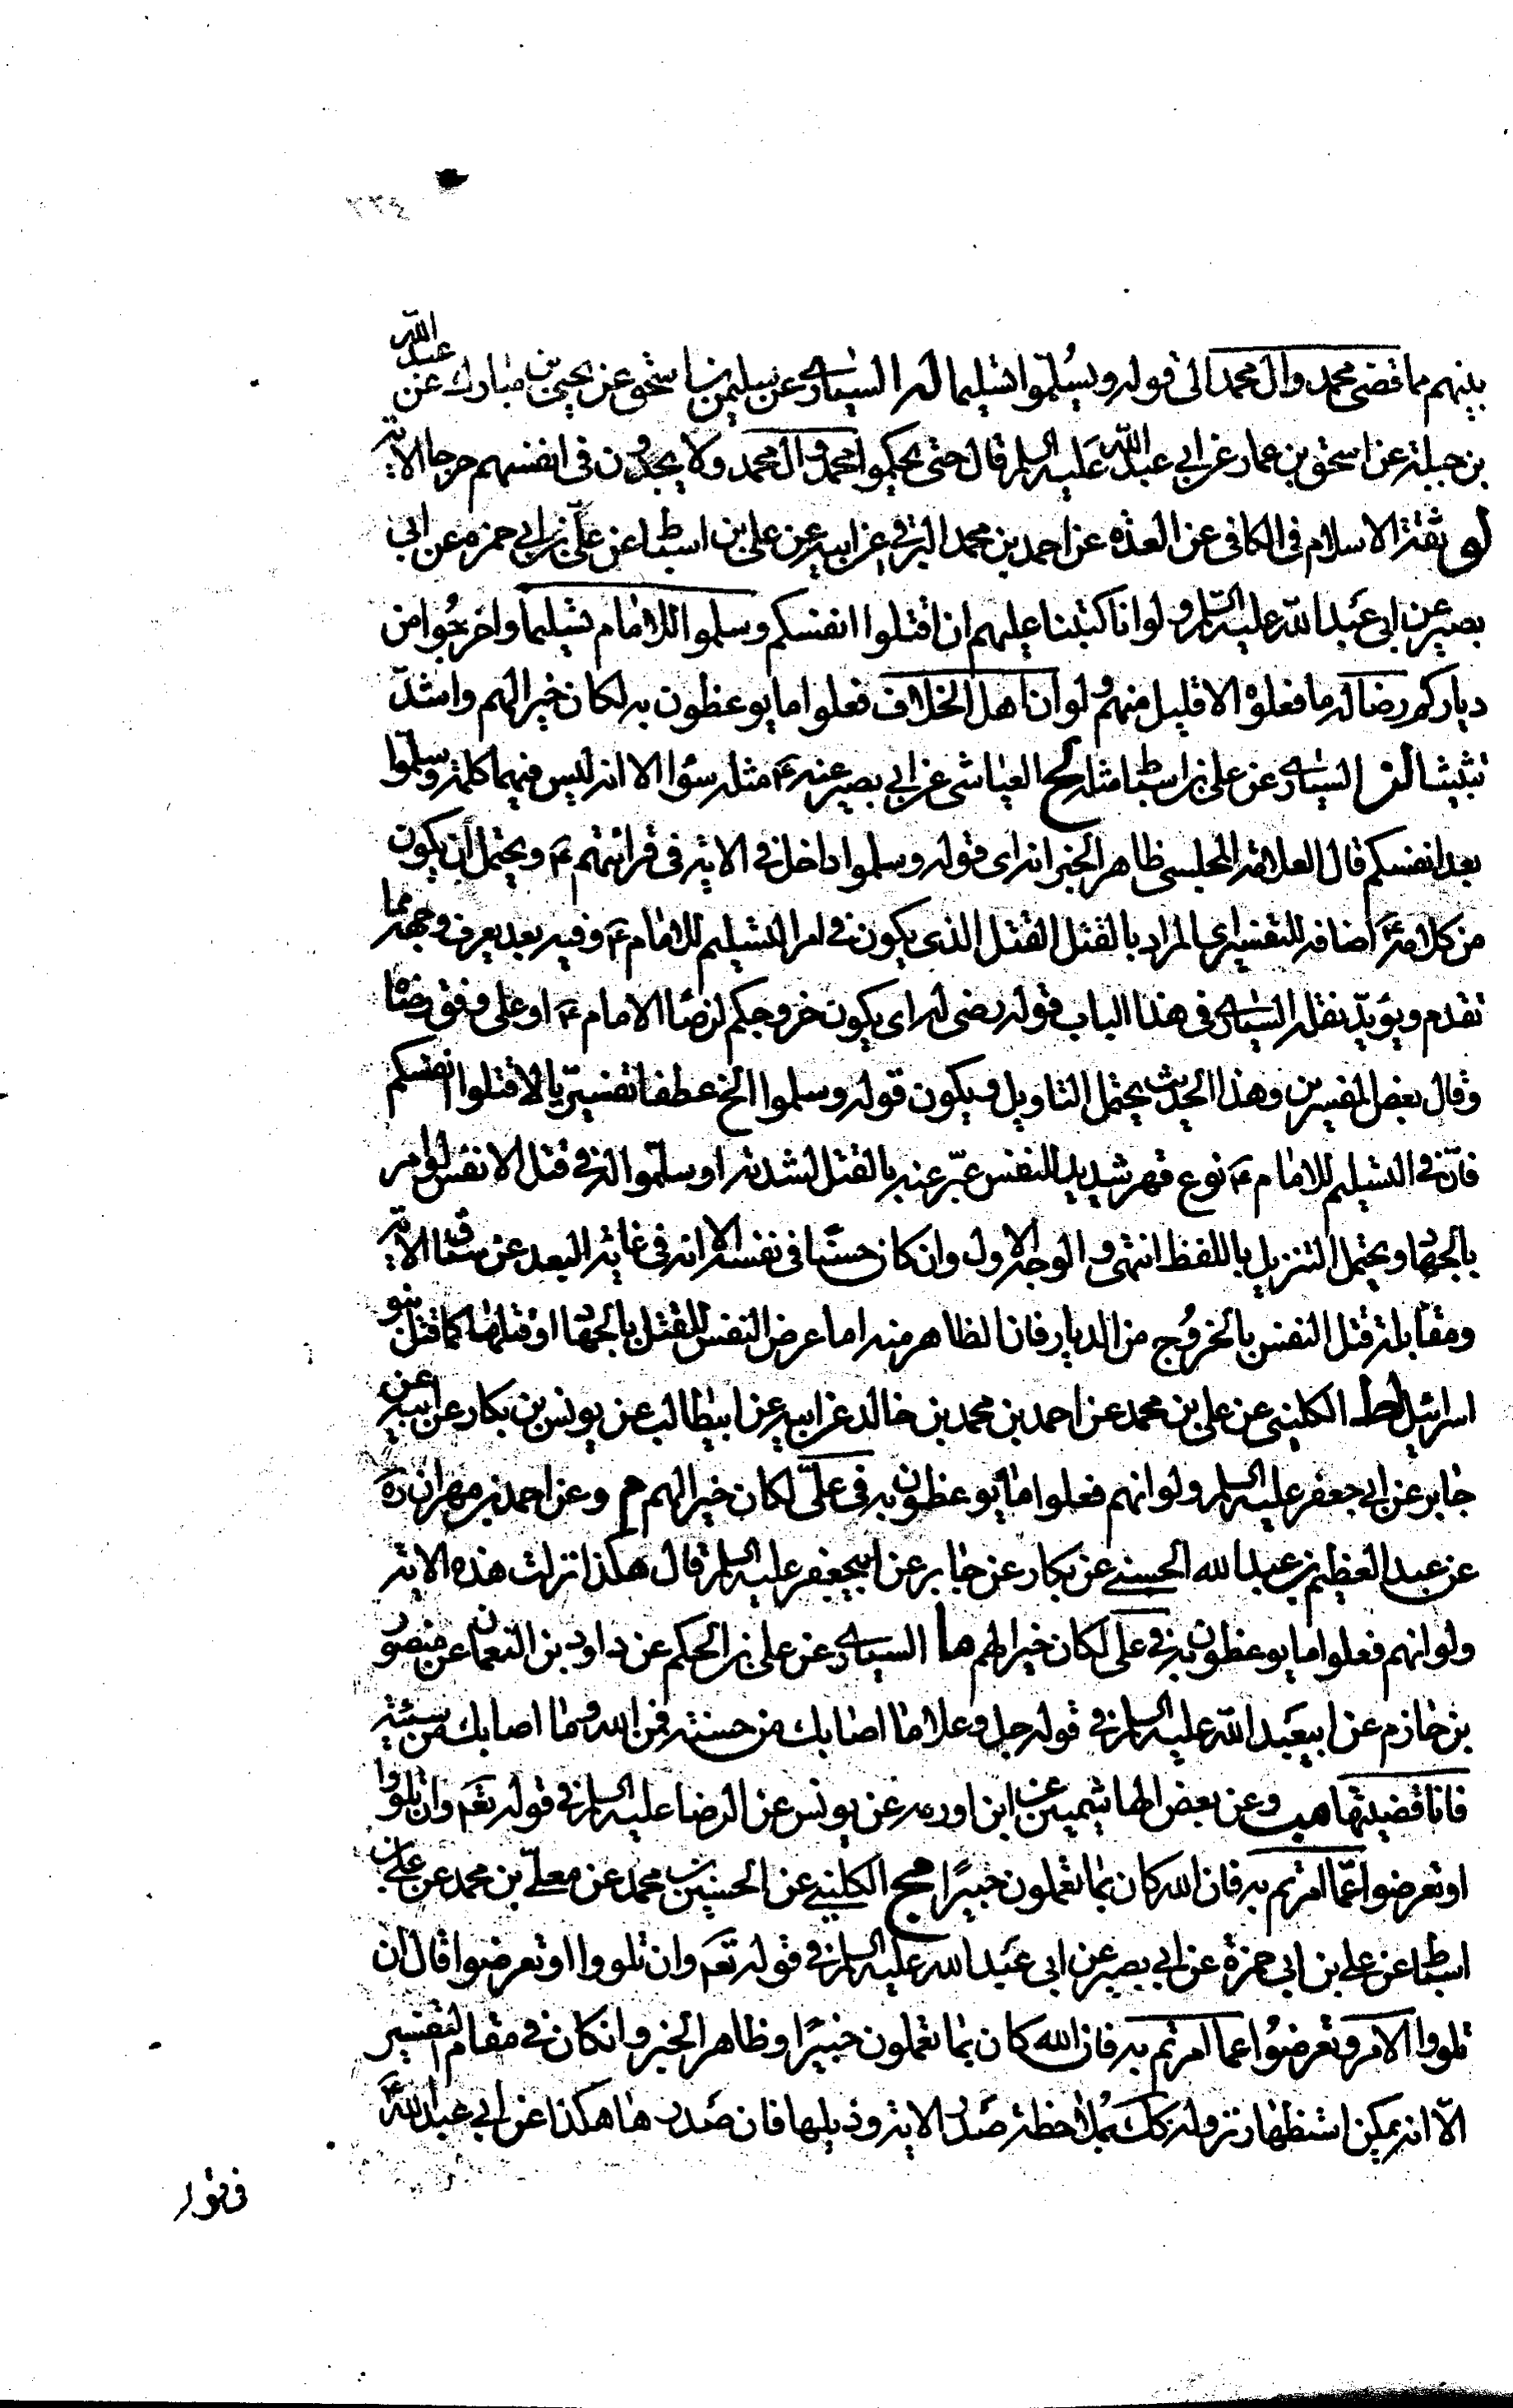 ٢٢٤
بينهم مما قضى محمد وال محمد الى قوله ويسلموا تسليما له السياري عن سليمن بن اسحق عن يحيى بن مبارك عن عبد الله
بن جبلة عن اسحق بن عمار عن ابي عبد الله عليه السلم قال حتى يحكموا محمدا وال محمد ولا يجدون في انفسهم حرجا الاية
لو ثقة الاسلام في الكافي عن العدة عن احمد بن محمد البرقي عن ابيه عن علي بن اسباط عن علي بن ابي حمزه عن ابي
بصير عن ابي عبد الله عليه السلم ولو انا كتبنا عليهم ان اقتلوا انفسكم وسلموا للامام تسليما واخرجوا من
دياركم رضا له ما فعلوه الا قليل منهم ولو ان اهل الخلاف فعلوا ما يوعظون به لكان خيرا لهم واشد
تثبيتا لز السياري عن علي بن اسباط مثله لح العياشي عن ابي بصير عنه ع مثله سواء الا انه ليس فيهما كلمة وسلموا
بعد انفسكم قال العلامة المجلسي ظاهر الخبر انه اي قوله وسلموا داخل في الاية في قرائتهم ع ويحتمل ان يكون
من كلامه ع اضافه للتفسير اي المراد بالقتل القتل الذي يكون في امر التسليم للامام ع وفيه بعد يعرف وجهه مما
تقدم ويؤيده نقل السياري في هذا الباب قوله رضى له اي يكون خروجكم لرضا الامام ع او على وفق رضاه
وقال بعض المفسرين وهذا الحديث يحتمل التاويل ويكون قوله وسلموا الخ عطفا تفسيريا لاقتلوا انفسكم
فان في التسليم للامام ع نوع قهر شديد للنفس عبر عنه بالقتل لشدته او سلموا له في قتل الانفس لو امر
بالجهاد ويحتمل التنزيل باللفظ انتهى والوجه الاول وان كان حسنا في نفسه الا انه في غاية البعد عن سياق الاية
ومقابلة قتل النفس بالخروج من الديار فان الظاهر منه اما عرض النفس للقتل بالجهاد او قتلها كما قتل بنو
اسرائيل لط الكليني عن علي بن محمد عن احمد بن محمد بن خالد عن ابيه عن ابيطالب عن يونس بن بكار عن ابيه عن
جابر عن ابي جعفر عليه السلم ولو انهم فعلوا ما يوعظون به في علي لكان خيرا لهم م وعن احمد بن مهران ره
عن عبد العظيم بن عبد الله الحسني عن بكار عن جابر عن ابيجعفر عليه السلم قال هكذا نزلت هذه الاية
ولو انهم فعلوا ما يوعظون به في علي لكان خيرا لهم ما السياري عن علي بن الحكم عن داود بن النعمان عن منصور
بن حازم عن ابيعبد الله عليه السلم في قوله جل وعلا ما اصابك من حسنة فمن الله وما اصابك من سيئة
فانا قضيتها مب وعن بعض الهاشميين عن ابن اورمه عن يونس عن الرضا عليه السلم في قوله تعم وان تلووا
او تعرضوا عما امرتم به فان الله كان بما تعملون خبيرا مج الكليني عن الحسين بن محمد عن معلى بن محمد عن علي بن
اسباط عن علي بن ابي حمزة عن ابي بصير عن ابي عبد الله عليه السلم في قوله تعم وان تلووا او تعرضوا قال ان
تلووا الامر وتعرضوا عما امرتم به فان الله كان بما تعملون خبيرا وظاهر الخبر وان كان في مقام التفسير
الا انه يمكن استظهار نزوله كك بملاحظة صدر الاية وذيلها فان صدرها هكذا عن ابي عبد الله ع
في قوله